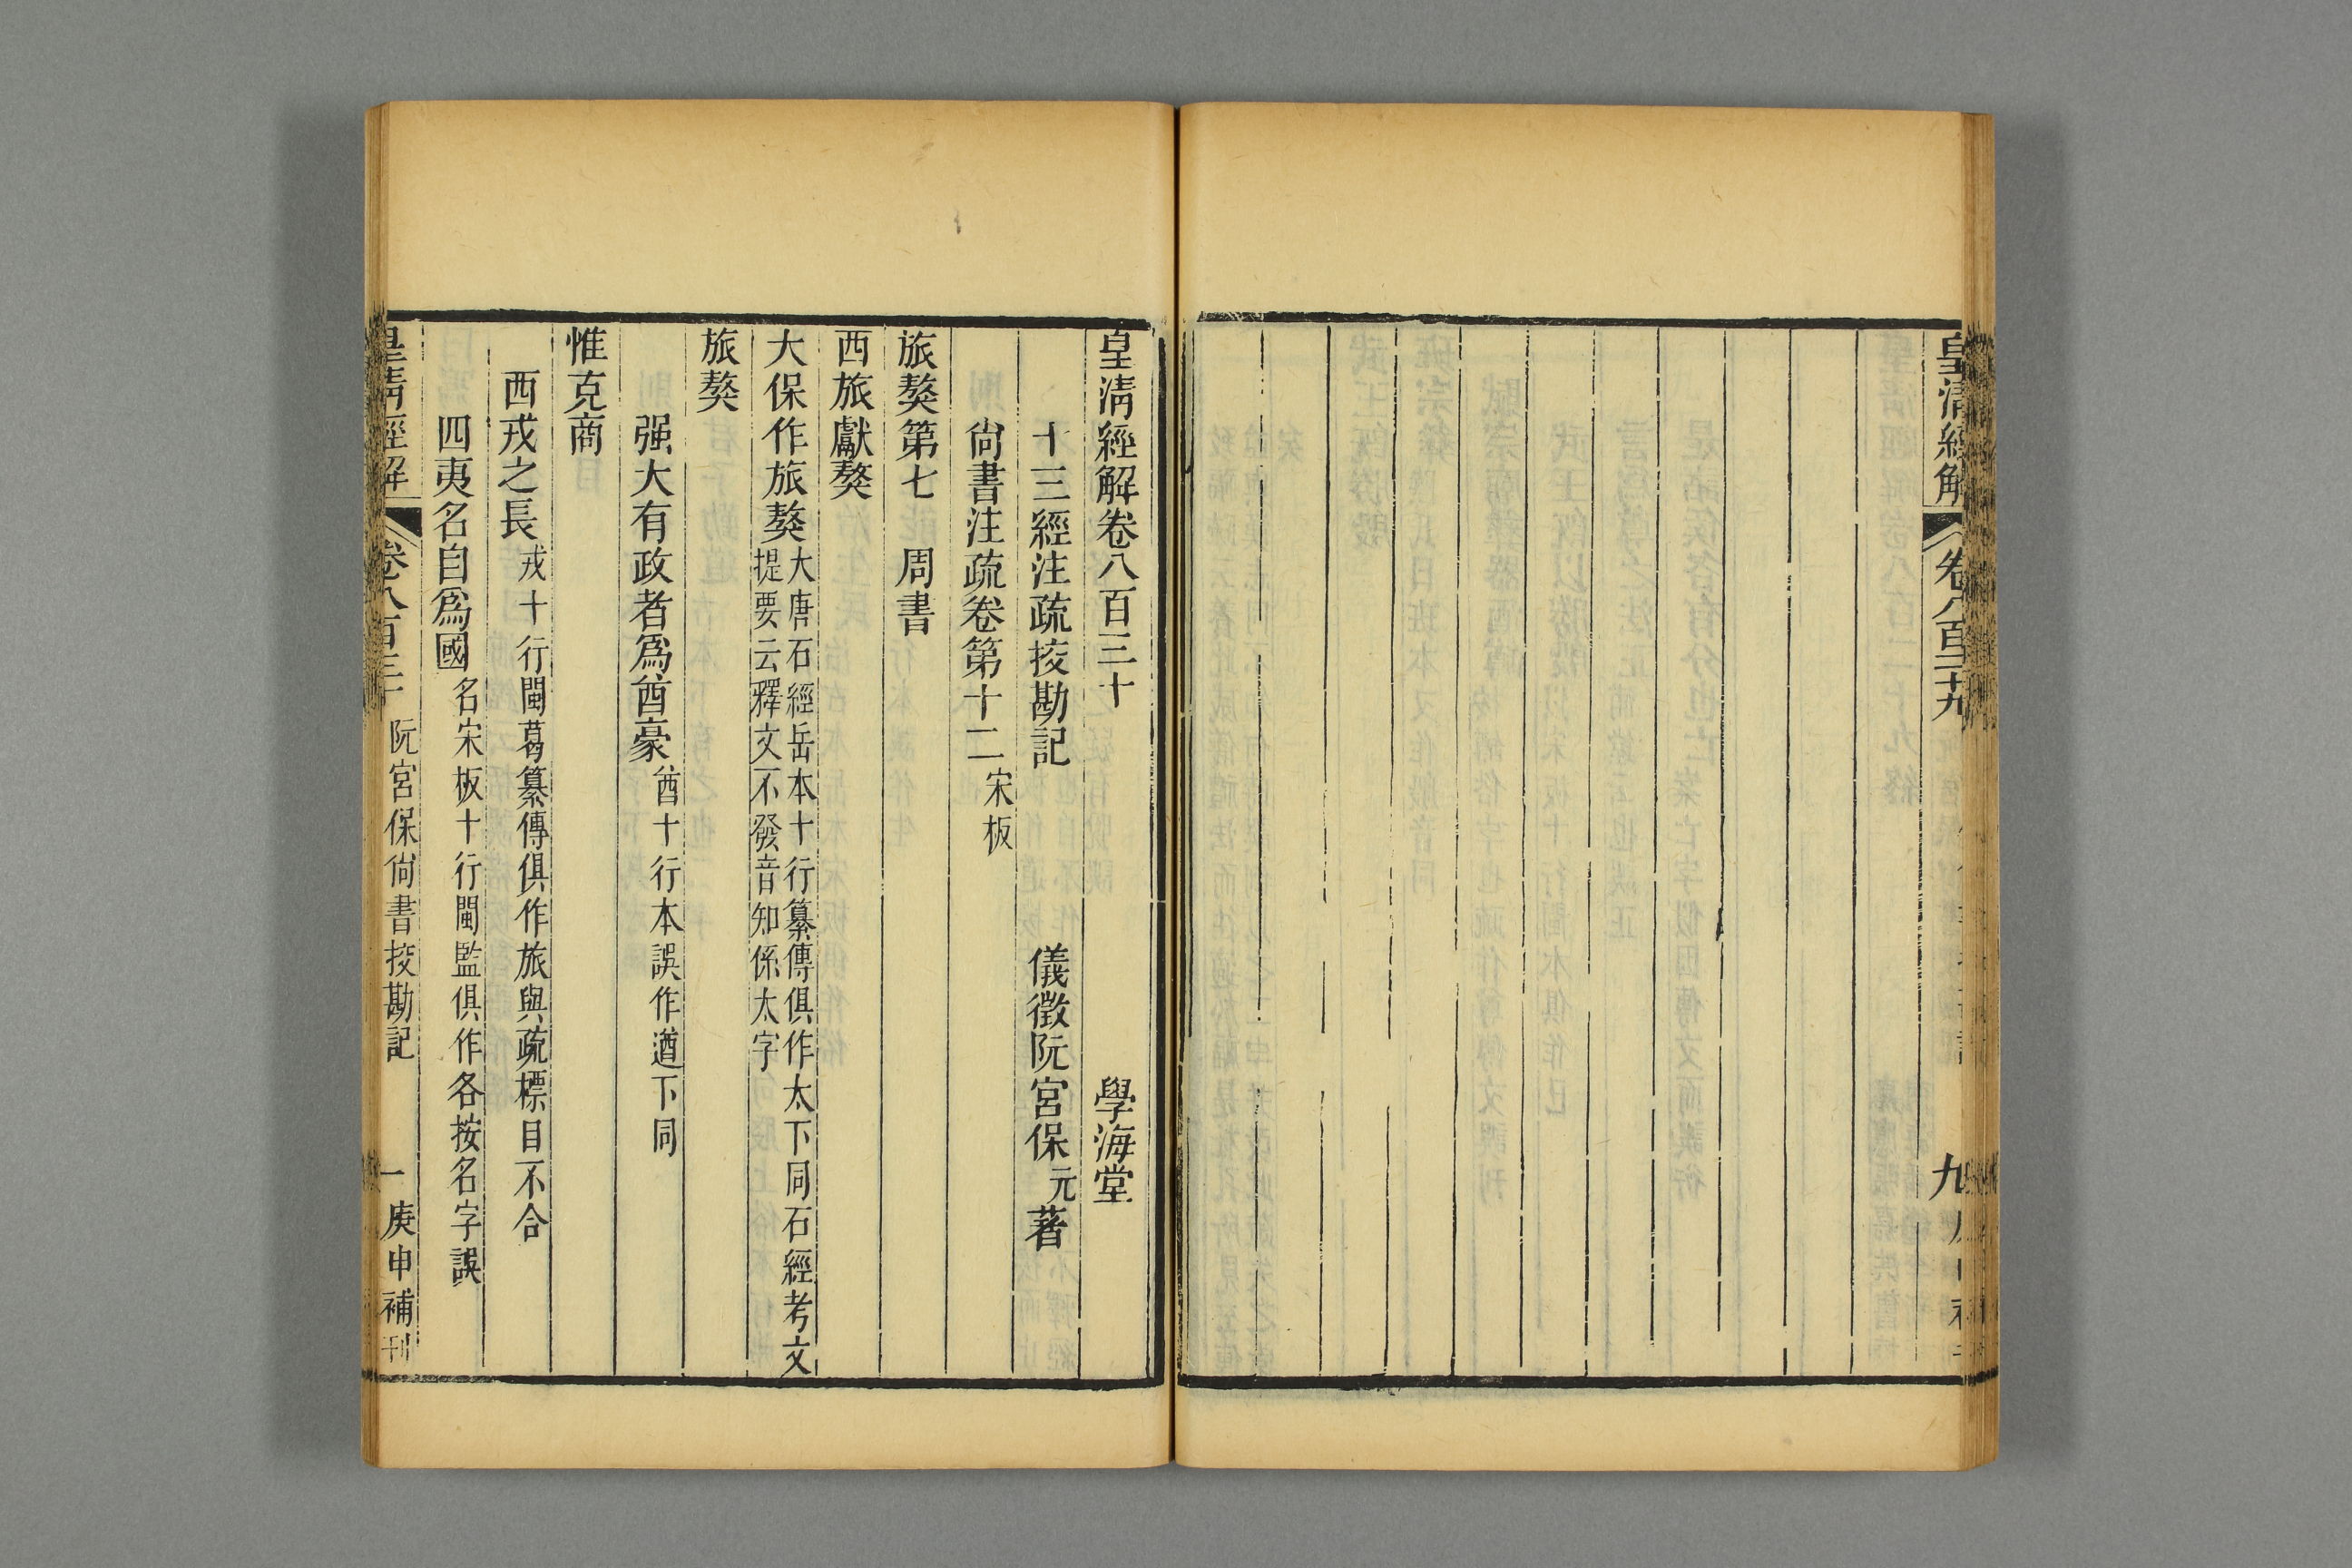 皇清經解
卷八百二十九
九
皇清經解卷八百三十
學海堂
十三經注疏挍勘記
儀徵阮宮保元著
尙書注疏卷第十二宋板
旅獒第七 周書
西旅獻獒
大保作旅獒大唐石經岳本十行纂傳俱作太下同石經考文
提要云釋文不發音知係太字
旅獒
强大有政者爲酋豪酋十行本誤作遒下同
惟克商
西戎之長戎十行閩葛纂傳俱作旅與疏標目不合
四夷名自爲國名宋板十行閩監俱作各按名字誤
皇清經解 卷八百三十 阮宮保尙書挍勘記 一 庚申補刊